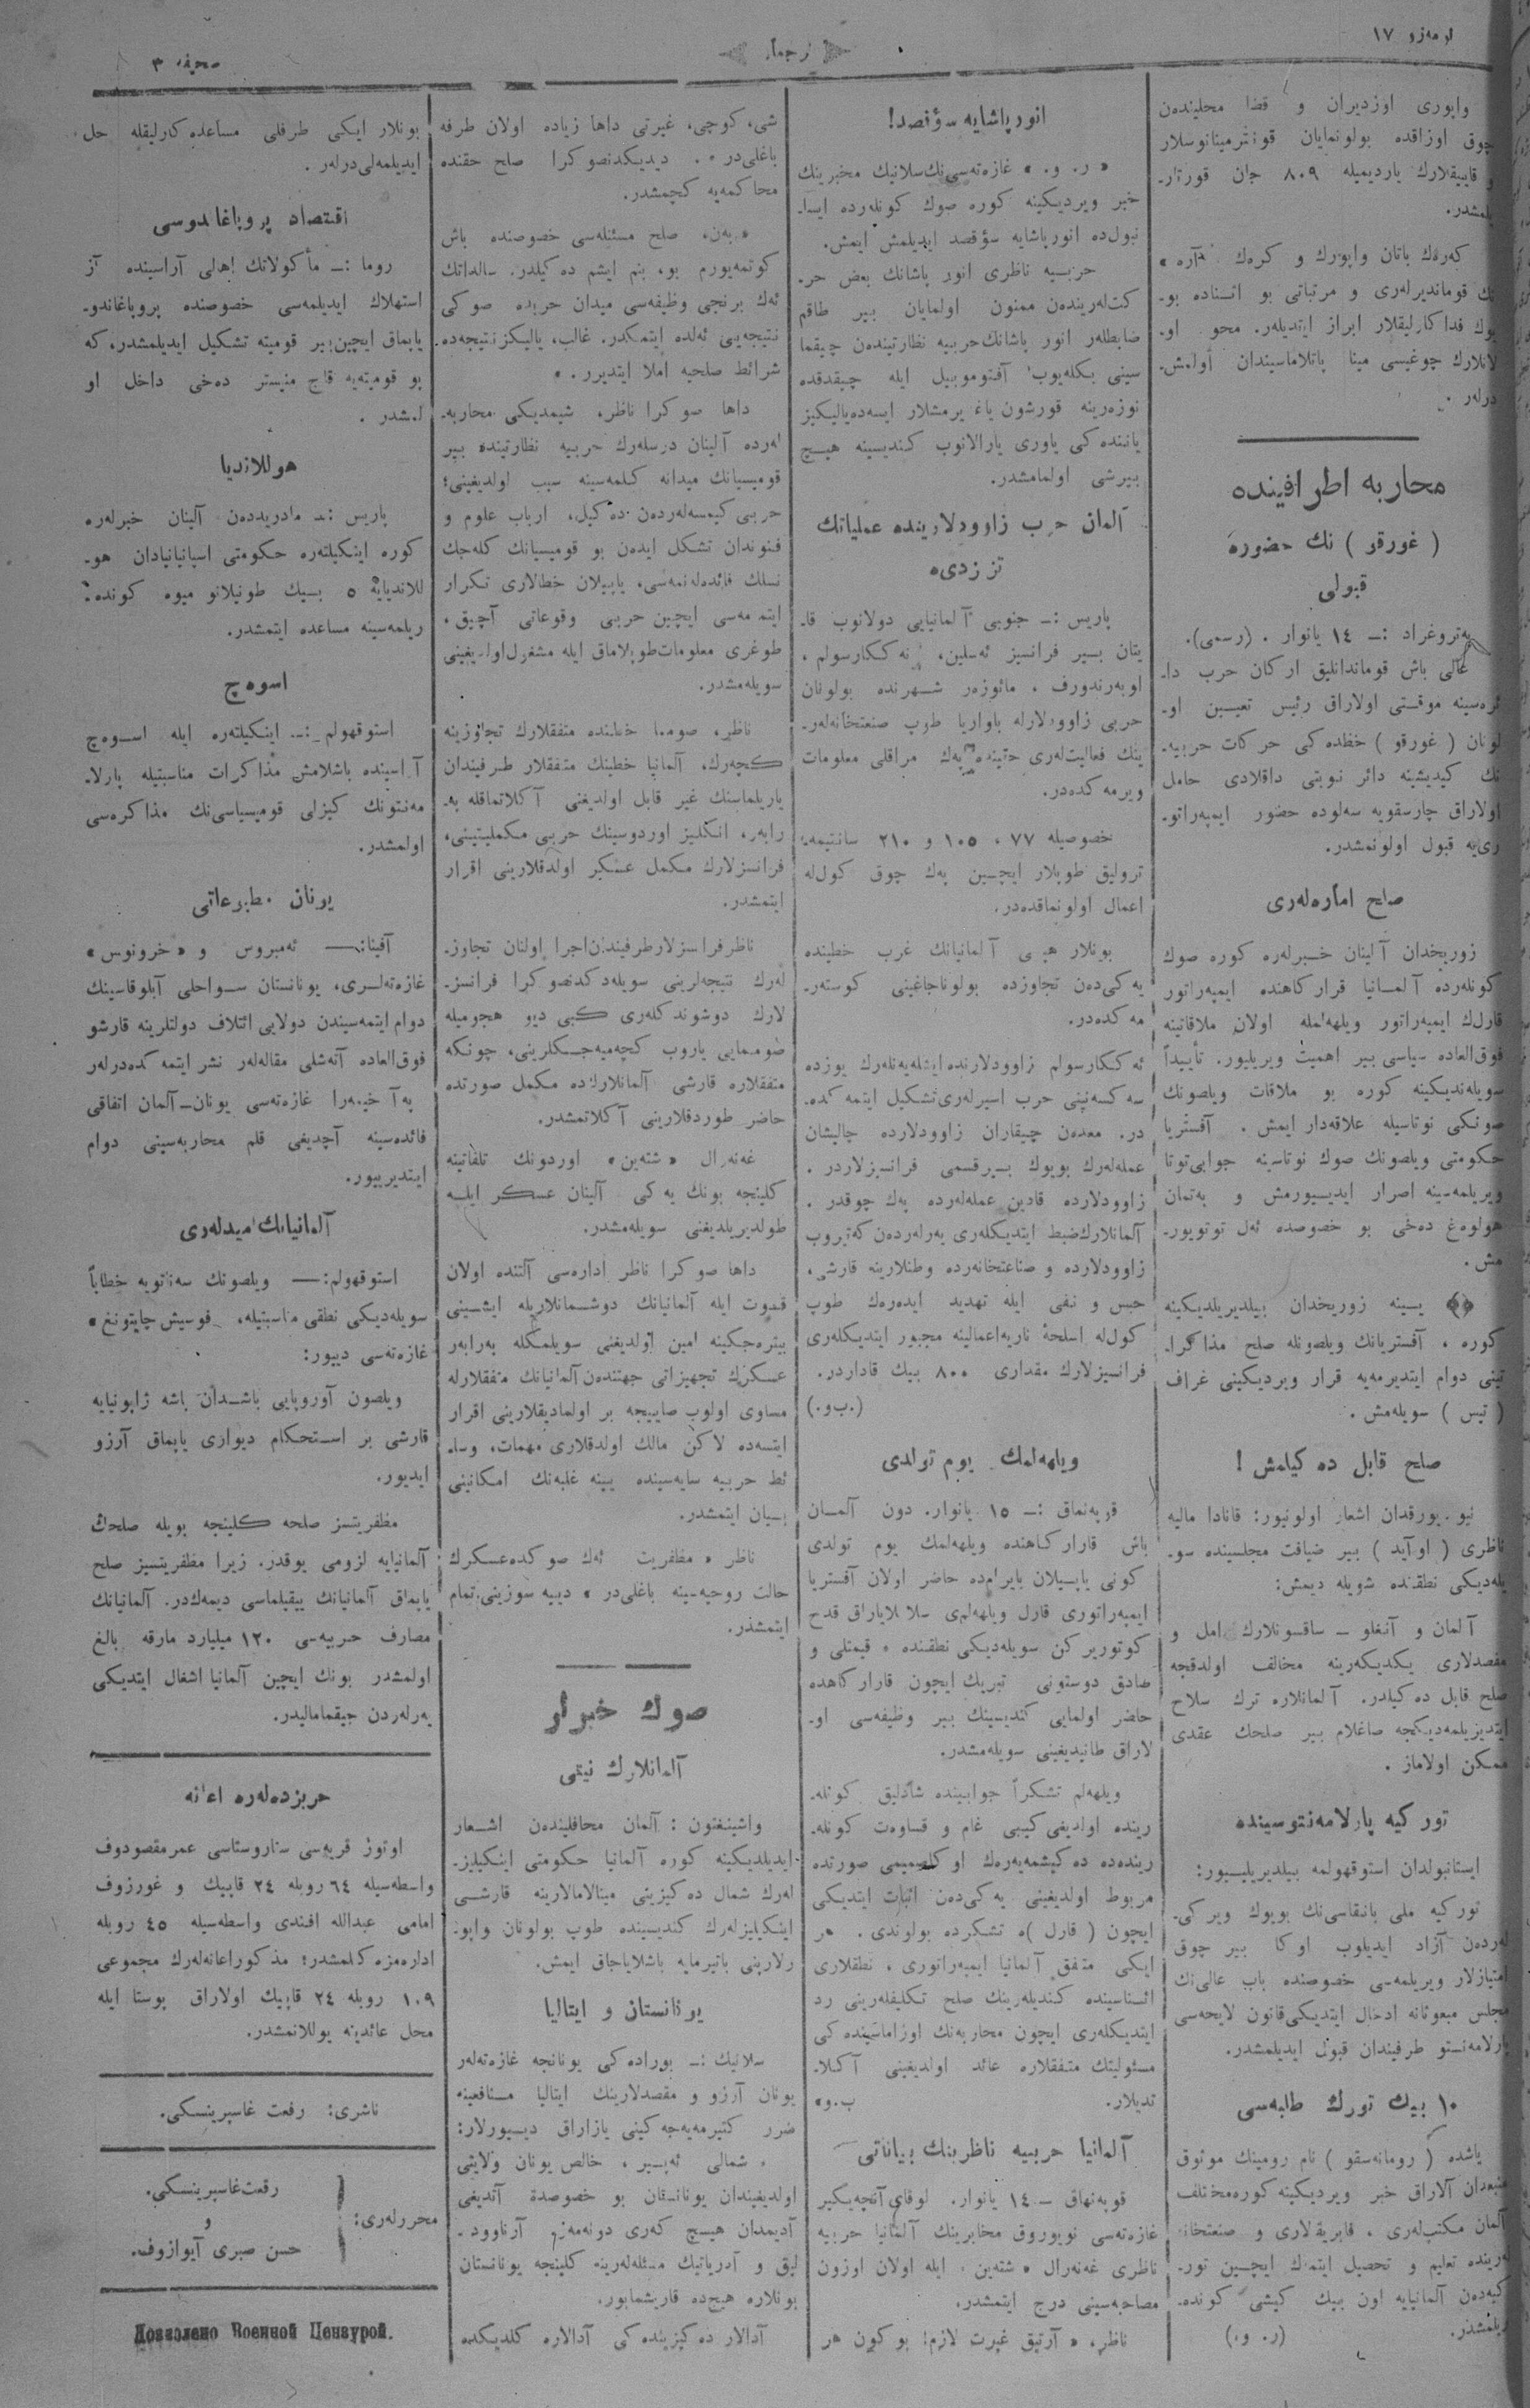 نومرو ١٧
ترجمان
صحیفه ٣
واپوری اوزدیران و قضا محلیندن
چوق اوزاقده بولونمایان قونترمینانوسلار
و قاییقلارك یاردیمیله ٨٠٩ جان قورتار-
یلمشدر.
كه‌ره‌ك باتان واپورك و كره‌ك
قوماندیرله‌ری و مرتباتی بو اثناده بو-
یوك فداكارلیقلار ابراز ایتدیله‌ر. محو او-
لانلارك چوغیسی مینا پاتلاماسیندان اولمش-
درلەر.
محاربه اطرافینده
( غورقو ) نك حضوره
قبولی
په‌تروغراد :— ١٤ یانوار. (رسمی).
عالی باش قوماندانلیق اركان حرب دا-
ئره‌سینه موقتی اولاراق رئیس تعیین او-
لونان ( غورقو ) خطده‌كی حركات حربیه-
نك كیدیشینه دائر نوبتی داقلادی حامل
اولاراق چارسقویه سه‌لوده حضور ایمپه‌راتو-
ری‌یه قبول اولونمشدر.
صلح اماره‌له‌ری
زوریخدان آلینان خبرله‌ره كوره صوك
كونله‌رده آلمانیا قراركاهنده ایمپه‌راتور
قارلك ایمپه‌راتور ویلهه‌لمله اولان ملاقاتینه
فوق‌العاده سیاسی بیر اهمیت ویریلیور. تأییداً
سویله‌ندیكینه كوره بو ملاقات ویلصونك
صونكی نوتاسیله علاقه‌دار ایمش. آفستریا
حكومتی ویلصونك صوك نوتاسینه جوابی‌نوتا
ویریلمه‌سینه اصرار ایدییورمش و به‌تمان
هولوه‌غ ده‌خی بو خصوصده ئه‌ل توتویور-
مش.
یینه زوریخدان بیلدیریلدیكینه
كوره، آفستریانك ویلصونله صلح مذاكرا-
تینی دوام ایتدیرمه‌یه قرار ویردیكینی غراف
( تیس ) سویله‌مش.
صلح قابل ده‌كیلمش !
نیو-یورقدان اشعار اولونیور: قانادا مالیه
ناظری ( اوآید ) بیر ضیافت مجلسینده سو-
یله‌دیكی نطقنده شویله دیمش:
آلمان و آنغلو — ساقسونلارك امل و
مقصدلاری یكدیكه‌رینه مخالف اولدقجه
صلح قابل ده‌كیلدر. آلمانلاره ترك سلاح
ایتدیریلمه‌دیكجه صاغلام بیر صلحك عقدی
ممكن اولاماز.
توركیه پارلامه‌نتوسینده
ایستانبولدان استوقهولمه بیلدیریلییور:
توركیه ملی بانقاسی‌نك بویوك ویركی-
له‌ردن آزاد ایدیلوب اوكا بیر چوق
امتیازلار ویریلمه‌سی خصوصنده باب عالی‌نك
مجلس مبعوثانه ادخال ایتدیكی قانون لایحه‌سی
پارلامه‌نتو طرفیندان قبول ایدیلمشدر.
١٠ بیك تورك طلبه‌سی
یاشده ( رومانه‌سقو ) نام رومینك موثوق
منبعدان آلاراق خبر ویردیكینه كوره‌مختلف
آلمان مكتب‌له‌ری، فابریقه‌لاری و صنعتخانه-
له‌رینده تعلیم و تحصیل ایتمك ایچین تور-
كیه‌دن آلمانیایه اون بیك كیشی كونده-
ریلمشدر. (ر. و.)
انورپاشایه سوٴقصد!
« ر. و. » غازه‌ته‌سی‌نك‌سلانیك مخبرینك
خبر ویردیكینه كوره صوك كونله‌رده ایستا-
نبول‌ده انورپاشایه سوٴقصد ایدیلمش ایمش.
حربیه ناظری انور پاشانك بعض حر-
كت‌له‌ریندن ممنون اولمایان بیر طاقم
ضابطله‌ر انور پاشانك‌حربیه نظارتیندن چیقما
سینی بكله‌یوب آفتوموبیل ایله چیقدقده
ئوزه‌رینه قورشون یاغدیرمشلار ایسه‌ده‌یالیكیز
یاننده‌كی یاوری یارالانوب كندیسینه هیچ
بیرشی اولمامشدر.
آلمان حرب زاوودلارینده عملیاتك
تزیدی
پاریس :— جنوبی آلمانیایی دولانوب قا-
یتان بیر فرانسیز ئه‌سلین،
اوبه‌رندورف، مائوزه‌ر شهرنده بولونان
حربی زاوودلارله باواریا طوپ صنعتخانه‌له‌ر-
ینك فعالیت‌له‌ری حقینده‌په‌ك مراقلی معلومات
ویرمه‌كده‌در.
خصوصیله ٧٧، ١٠٥ و ٢١٠ سانتیمه-
ترولیق طوپلار ایچین په‌ك چوق كولله
اعمال اولونماقده‌در.
بونلار هپی آلمانیانك غرب خطینده
یه‌كی‌دن تجاوزده بولوناجاغینی كوسته‌ر-
مه‌كده‌در.
زاوودلارنده‌ایشله‌یه‌نله‌رك یوزده
سه‌كسه‌نینی حرب اسیرله‌ری‌تشكیل ایتمه‌كده-
در. معدن چیقاران زاوودلارده چالیشان
عمله‌له‌رك بویوك بیرقسمی فرانسیزلاردر.
زاوودلارده قادین عمله‌له‌رده په‌ك چوقدر.
آلمانلارك‌ضبط ایتدیكله‌ری یه‌رله‌ردن كه‌تیروب
زاوودلارده و صناعتخانه‌رده وطنلارینه قارشی،
حبس و نفی ایله تهدید ایده‌ره‌ك طوپ
كولله اسلحهٔ ناریه‌اعمالینه مجبور ایتدیكله‌ری
فرانسیزلارك مقداری ٨٠٠ بیك قاداردر.
(ب.و.)
ویلهه‌لمك یوم تولدی
قوپه‌نهاق :— ١٥ یانوار. دون آلمان
باش قراركاهنده ویلهه‌لمك یوم تولدی
كونی یاپیلان بایرام‌ده حاضر اولان آفستریا
ایمپه‌راتوری قارل ویلهه‌لم‌ی سلاملایاراق قدح
كوتوریركن سویله‌دیكی نطقنده « قیمتلی و
صادق دوستونی تبریك ایچون قراركاهده
حاضر اولمایی كندیسینك بیر وظیفه‌سی او-
لاراق طانیدیغینی سویله‌مشدر.
ویلهه‌لم تشكراً جوابینده شادلیق كونله-
رینده اولدیغی‌كیبی غام و قساوت كونله-
رینده‌ده ده‌كیشمه‌یه‌ره‌ك اوكا صمیمی صورتده
مربوط اولدیغینی یه‌كی‌دن اثبات ایتدیكی
ایچون ( قارل )ه تشكرده بولوندی. هر
ایكی متفق آلمانیا ایمپه‌راتوری، نطقلاری
اثناسینده كندیله‌رینك صلح تكلیفله‌رینی رد
ایتدیكله‌ری ایچون محاربه‌نك اوزاماسینده‌كی
مسئولیتك متفقلاره عائد اولدیغینی آكلا-
تدیلار. ب.و»
آلمانیا حربیه ناظرینك بیاناتی
قوپه‌نهاق — ١٤ یانوار. لوقال‌آنچه‌یكیر
غازه‌ته‌سی نویوروق مخابرینك آلمانیا حربیه
ناظری غه‌نه‌رال « شته‌ین » ایله اولان اوزون
مصاحبه‌سینی درج ایتمشدر.
ناظر، « آرتیق غیرت لازم! بوكون هر
شی، كوچی، غیرتی داها زیاده اولان طرفه
باغلی‌در ». دیدیكدنصوكرا صلح حقنده
محاكمه‌یه كچمشدر.
« بن، صلح مسئله‌سی خصوصنده باش
كوتمه‌یورم بو، بنم ایشم ده‌كیلدر. سالداتك
ئه‌ك برنجی وظیفه‌سی میدان حربده صوكی
نتیجه‌یی ئه‌لده ایتمكدر. غالب، یالیكز نتیجه‌ده
شرائط صلحیه املا ایتدیرر. »
داها صوكرا ناظر، شیمدیكی محاربه-
له‌رده آلینان درسله‌رك حربیه نظارتینده بیر
قومیسیانك میدانه كلمه‌سینه سبب اولدیغینی؛
حربی كیمسه‌له‌ردن ده‌كیل، ارباب علوم و
فنوندان تشكل ایدن بو قومیسیانك كله‌جك
نسلك فائده‌له‌نمه‌سی، یاپیلان خطالاری تكرار
ایتمه‌مه‌سی ایچین حربی وقوعاتی آچیق،
طوغری معلومات‌طوپلاماق ایله مشغول‌اولدیغینی
سویله‌مشدر.
ناظر، صومما خطنده متفقلارك تجاوزینه
كچه‌رك، آلمانیا خطینك متفقلار طرفیندان
یاریلماسنك غیر قابل اولدیغنی آكلاتماقله به-
رابه‌ر، انكلیز اوردوسینك حربی مكملیتینی،
فرانسزلارك مكمل عسكر اولدقلارینی اقرار
ایتمشدر.
ناظر فرانسزلارطرفیندن‌اجرا اولنان تجاوز-
له‌رك نتیجه‌لرینی سویله‌دكدنصوكرا فرانسز-
لارك دوشوندكله‌ری كبی دیو هجومیله
صوممایی یاروب كچه‌میه‌جكلرینی، چونكه
متفقلاره قارشی آلمانلارك‌ده مكمل صورتده
حاضر طوردقلارینی آكلاتمشدر.
غه‌نه‌رال « شته‌ین » اوردونك تلفاتینه
كلینجه بونك یه‌كی آلینان عسكر ایله
طولدیریلدیغنی سویله‌مشدر.
داها صوكرا ناظر اداره‌سی آلتنده اولان
قوت ایله آلمانیانك دوشمانلاریله ایشینی
بیتره‌جكینه امین اولدیغنی سویلمكله به‌رابه‌ر
عسكرك تجهیزاتی جهتندن آلمانیانك متفقلارله
مساوی اولوب صاییجه بر اولمادیقلارینی اقرار
ایتسه‌ده لاكن مالك اولدقلاری مهمات، وسا-
ئط حربیه سایه‌سینده یینه غلبه‌نك امكانینی
بیان ایتمشدر.
ناظر « مظفریت ئه‌ك صوكده‌عسكرك
حالت روحیه‌سینه باغلی‌در » دییه سوزینی تمام
ایتمشدر.
صوك خبرلر
آلمانلارك نیتی
واشینغتون : آلمان محافلیندن اشعار
ایدیلدیكینه كوره آلمانیا حكومتی اینكیلیز-
له‌رك شمال ده‌كیزینی مینالامالارینه قارشی
اینكیلیزله‌رك كندیسینده طوپ بولونان واپو-
رلارینی باتیرمایه باشلایاجاق ایمش.
یونانستان و ایتالیا
سلانیك :— بوراده‌كی یونانجه غازه‌ته‌له‌ر
یونان آرزو و مقصدلارینك ایتالیا منافعینه
ضرر كتیرمه‌یه‌جه‌كینی یازاراق دییورلار:
« شمالی ئه‌پیر، خالص یونان ولایتی
اولدیغیندان یونانستان بو خصوصده آتدیغی
آدیمدان هیچ كه‌ری دونه‌مه‌ز. آرناوود-
لیق و آدریاتیك مسئله‌له‌رینه كلینجه یونانستان
بونلاره هیچ‌ده قاریشمایور.
آدالار ده‌كیزینده‌كی آدالاره كلدیكده
بونلار ایكی طرفلی مساعده‌كارلیقله حل
ایدیلمه‌لی‌درله‌ر.
اقتصاد پروپاغاندوسی
روما :— مأكولاتك اهالی آراسینده آز
استهلاك ایدیلمه‌سی خصوصنده پروپاغاندو-
یاپماق ایچین‌بیر قومیته تشكیل ایدیلمشدر، كه
بو قومیته‌یه قاچ منیستر ده‌خی داخل او
لمشدر.
هوللاندیا
پاریس :— مادریددن آلینان خبرله‌ره
كوره اینكیلته‌ره حكومتی اسپانیانیادان هو-
للاندیایه ٥ بییك طونیلانو میوه كونده-
ریلمه‌سینه مساعده ایتمشدر.
اسوه‌چ
استوقهولم :— اینكیلته‌ره ایله اسوه‌چ
آراسینده باشلامش مذاكرات مناسبتیله پارلا-
مه‌نتونك كیزلی قومیسیاسی‌نك مذاكره‌سی
اولمشدر.
یونان مطبوعاتی
آفینا: — ئه‌مبروس و « خرونوس »
غازه‌ته‌لری، یونانستان سواحلی آبلوقاسینك
دوام ایتمه‌سیندن دولایی ائتلاف دولتلرینه قارشو
فوق‌العاده آتشلی مقاله‌له‌ر نشر ایتمه‌كده‌درله‌ر
غازه‌ته‌سی یونان—آلمان اتفاقی
فائده‌سینه آچدیغی قلم محاربه‌سینی دوام
ایتدیرییور.
آلمانیانك امیدله‌ری
استوقهولم: — ویلصونك سه‌ناتویه خطاباً
سویله‌دیكی نطقی مناسبتیله، فوسیش چایتونغ »
غازه‌ته‌سی دییور:
ویلصون آوروپایی باشدان باشه ژاپونیایه
قارشی بر استحكام دیواری یاپماق آرزو
ایدیور.
مظفریتسز صلحه كلینجه بویله صلحك
آلمانیایه لزومی یوقدر. زیرا مظفریتسیز صلح
یاپماق آلمانیانك ییقیلماسی دیمه‌كدر. آلمانیانك
مصارف حربیه‌سی ١٢٠ میلیارد مارقه بالغ
اولمشدر بونك ایچین آلمانیا اشغال ایتدیكی
یه‌رله‌ردن چیقمامالیدر.
حربزده‌له‌ره اعانه
اوتوز قریه‌سی ستاروستاسی عمرمقصودوف
واسطه‌سیله ٦٤ روبله ٢٤ قاپیك و غورزوف
امامی عبدالله افندی واسطه‌سیله ٤٥ روبله
اداره‌مزه كلمشدر؛ مذكوراعانه‌له‌رك مجموعی
١٠٩ روبله ٢٤ قاپیك اولاراق پوستا ایله
محل عائدینه یوللانمشدر.
ناشری: رفعت غاسپرینسكی.
محررله‌ری:
رفعت‌غاسپرینسكی.
و
حسن صبری آیوازوف.
Дозволено Военной Цензурой.